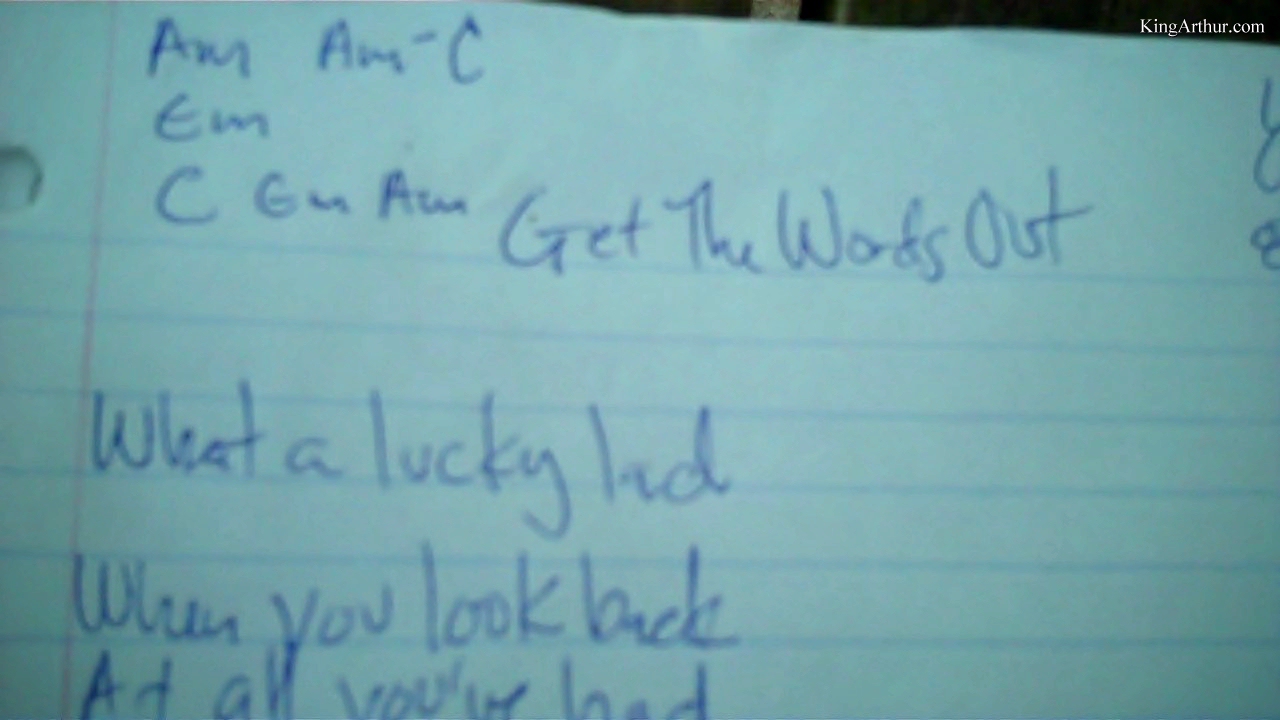 KingArthur.com
Am Am-C
Em
C Em Am Get The Words Out
What a lucky lad
When you look back
At all you've had